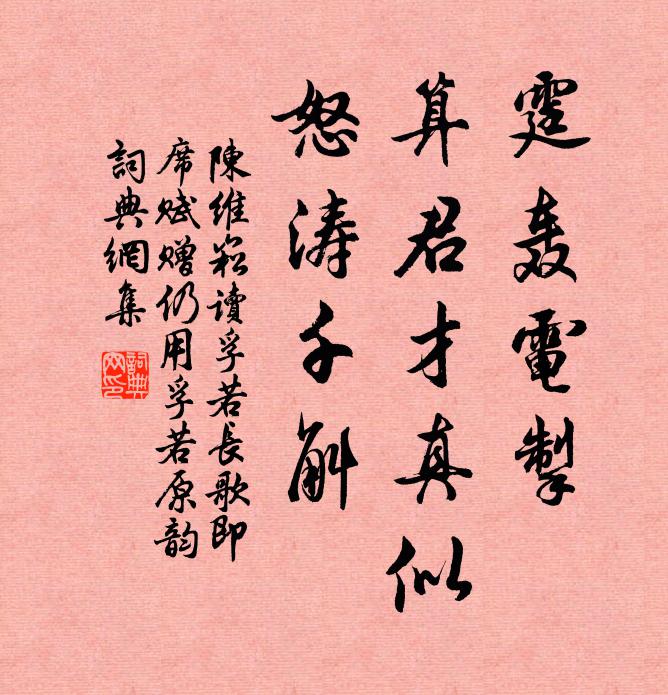 霆轰電掣
算君才真似
怒涛千斛
陳維崧讀孚若長歌即
席赋赠仍用孚若原韵
詞典網集
詞典网印